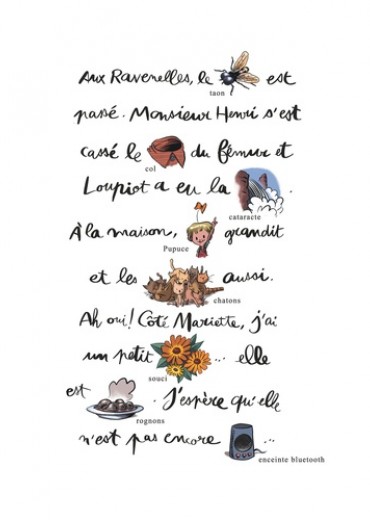 Aux Ravenelles, le est
taon
passé. Monsieur Henri s'est
cassé le du fémur et
col
Loupiot a eu la .
cataracte
À la maison, grandit
Pupuce
et les aussi.
chatons
Ah oui! Côté Mariette, j'ai
un petit ... elle
souci
est . J'espère qu'elle
rognons
n'est pas encore ...
enceinte bluetooth